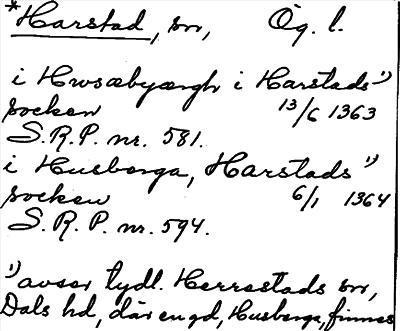 *Harstad, sn, Ög. l.
i Hwsæbyængh i Harstads¹)
socken 13/6 1363
S.R.P. nr. 581.
i Husberga, Harstads¹)
socken 6/1 1364
S.R.P. nr. 594.
¹) avser tydl. Herrestads sn,
Dals hd, där en gd, Husberga, finnes